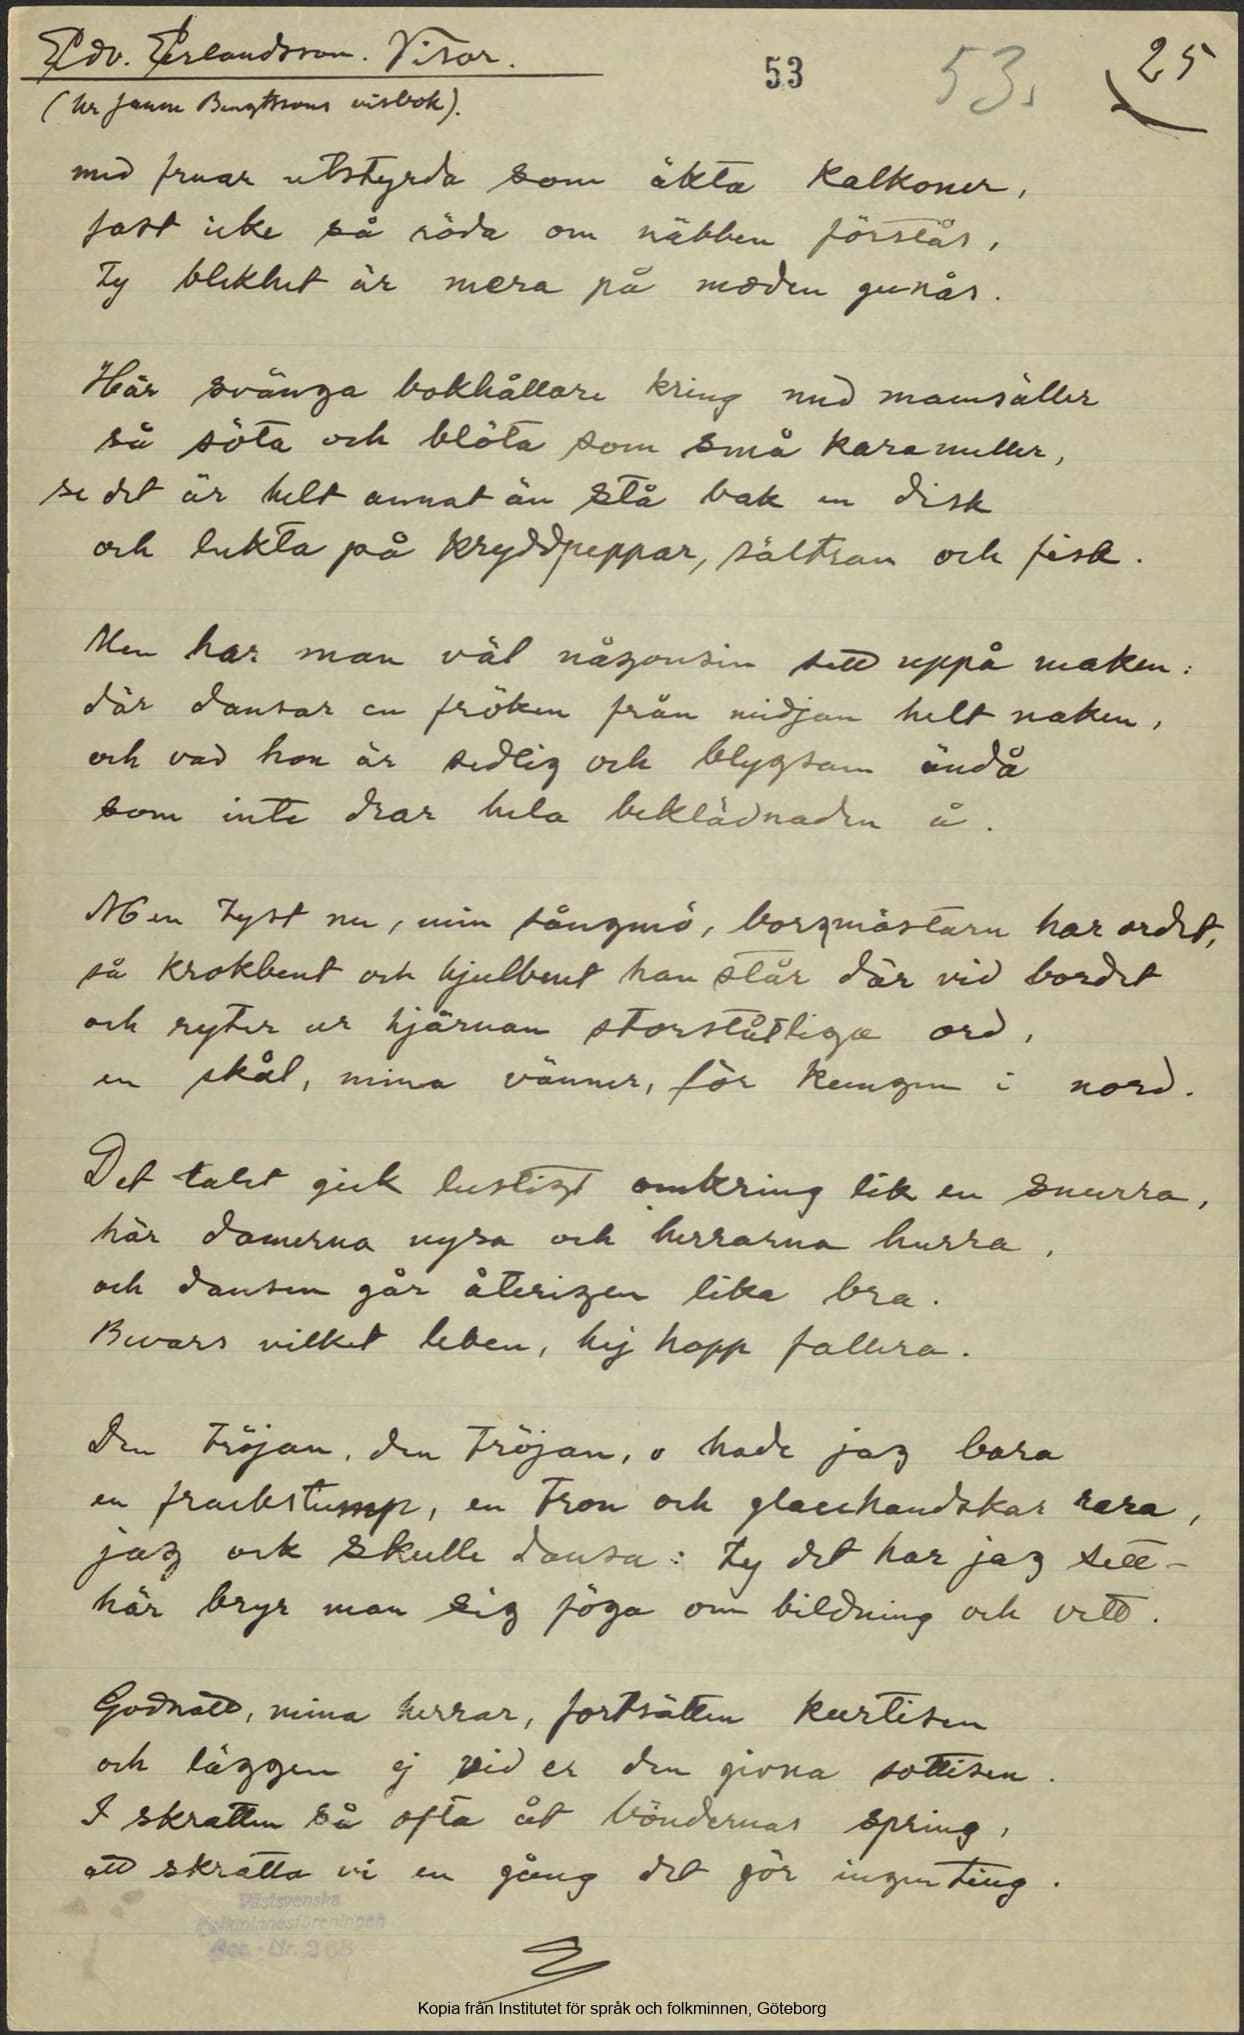 Edv. Erlandsson. Visor.
53
53.
25
(ur Janne Bengtssons visbok).
med fruar utstyrda som äkta kalkoner,
fast icke så röda om näbben förstås,
ty blekhet är mera på moden gunås.
Här svänga bokhållare kring med mamsäller
så söta och blöta som små karameller,
se det är helt annat än stå bak en disk
och lukta på kryddpeppar, sältran och fisk.
Men har man väl någonsin sett uppå maken:
där dansar en fröken från midjan helt naken,
och vad hon är sedlig och blygsam ändå
som inte drar hela beklädnaden å.
Men tyst nu, min sångmö, borgmästarn har ordet,
så krokbent och hjulbent han står där vid bordet
och ryter ur hjärnan storståtliga ord,
en skål, mina vänner, för kungen i nord.
Det talet gick lustigt omkring lik en snurra,
här damerna nysa och herrarna hurra,
och dansen går återigen lika bra.
Bevars vilket leben, hej hopp fallera.
Den tröjan, den tröjan, o hade jag bara
en frackstump, en tron och glacehandskar rara,
jag ock skulle dansa: ty det har jag sett-
här bryr man sig föga om bildning och vett.
Godnatt, mina herrar, fortsätten kurtisen
och läggen ej vid er den givna sottisen.
I skratten så ofta åt böndernas spring,
att skratta vi en gång det gör ingenting.
Västsvenska
Folkminnesföreningen
Acc.-Nr. 268
Kopia från Institutet för språk och folkminnen, Göteborg